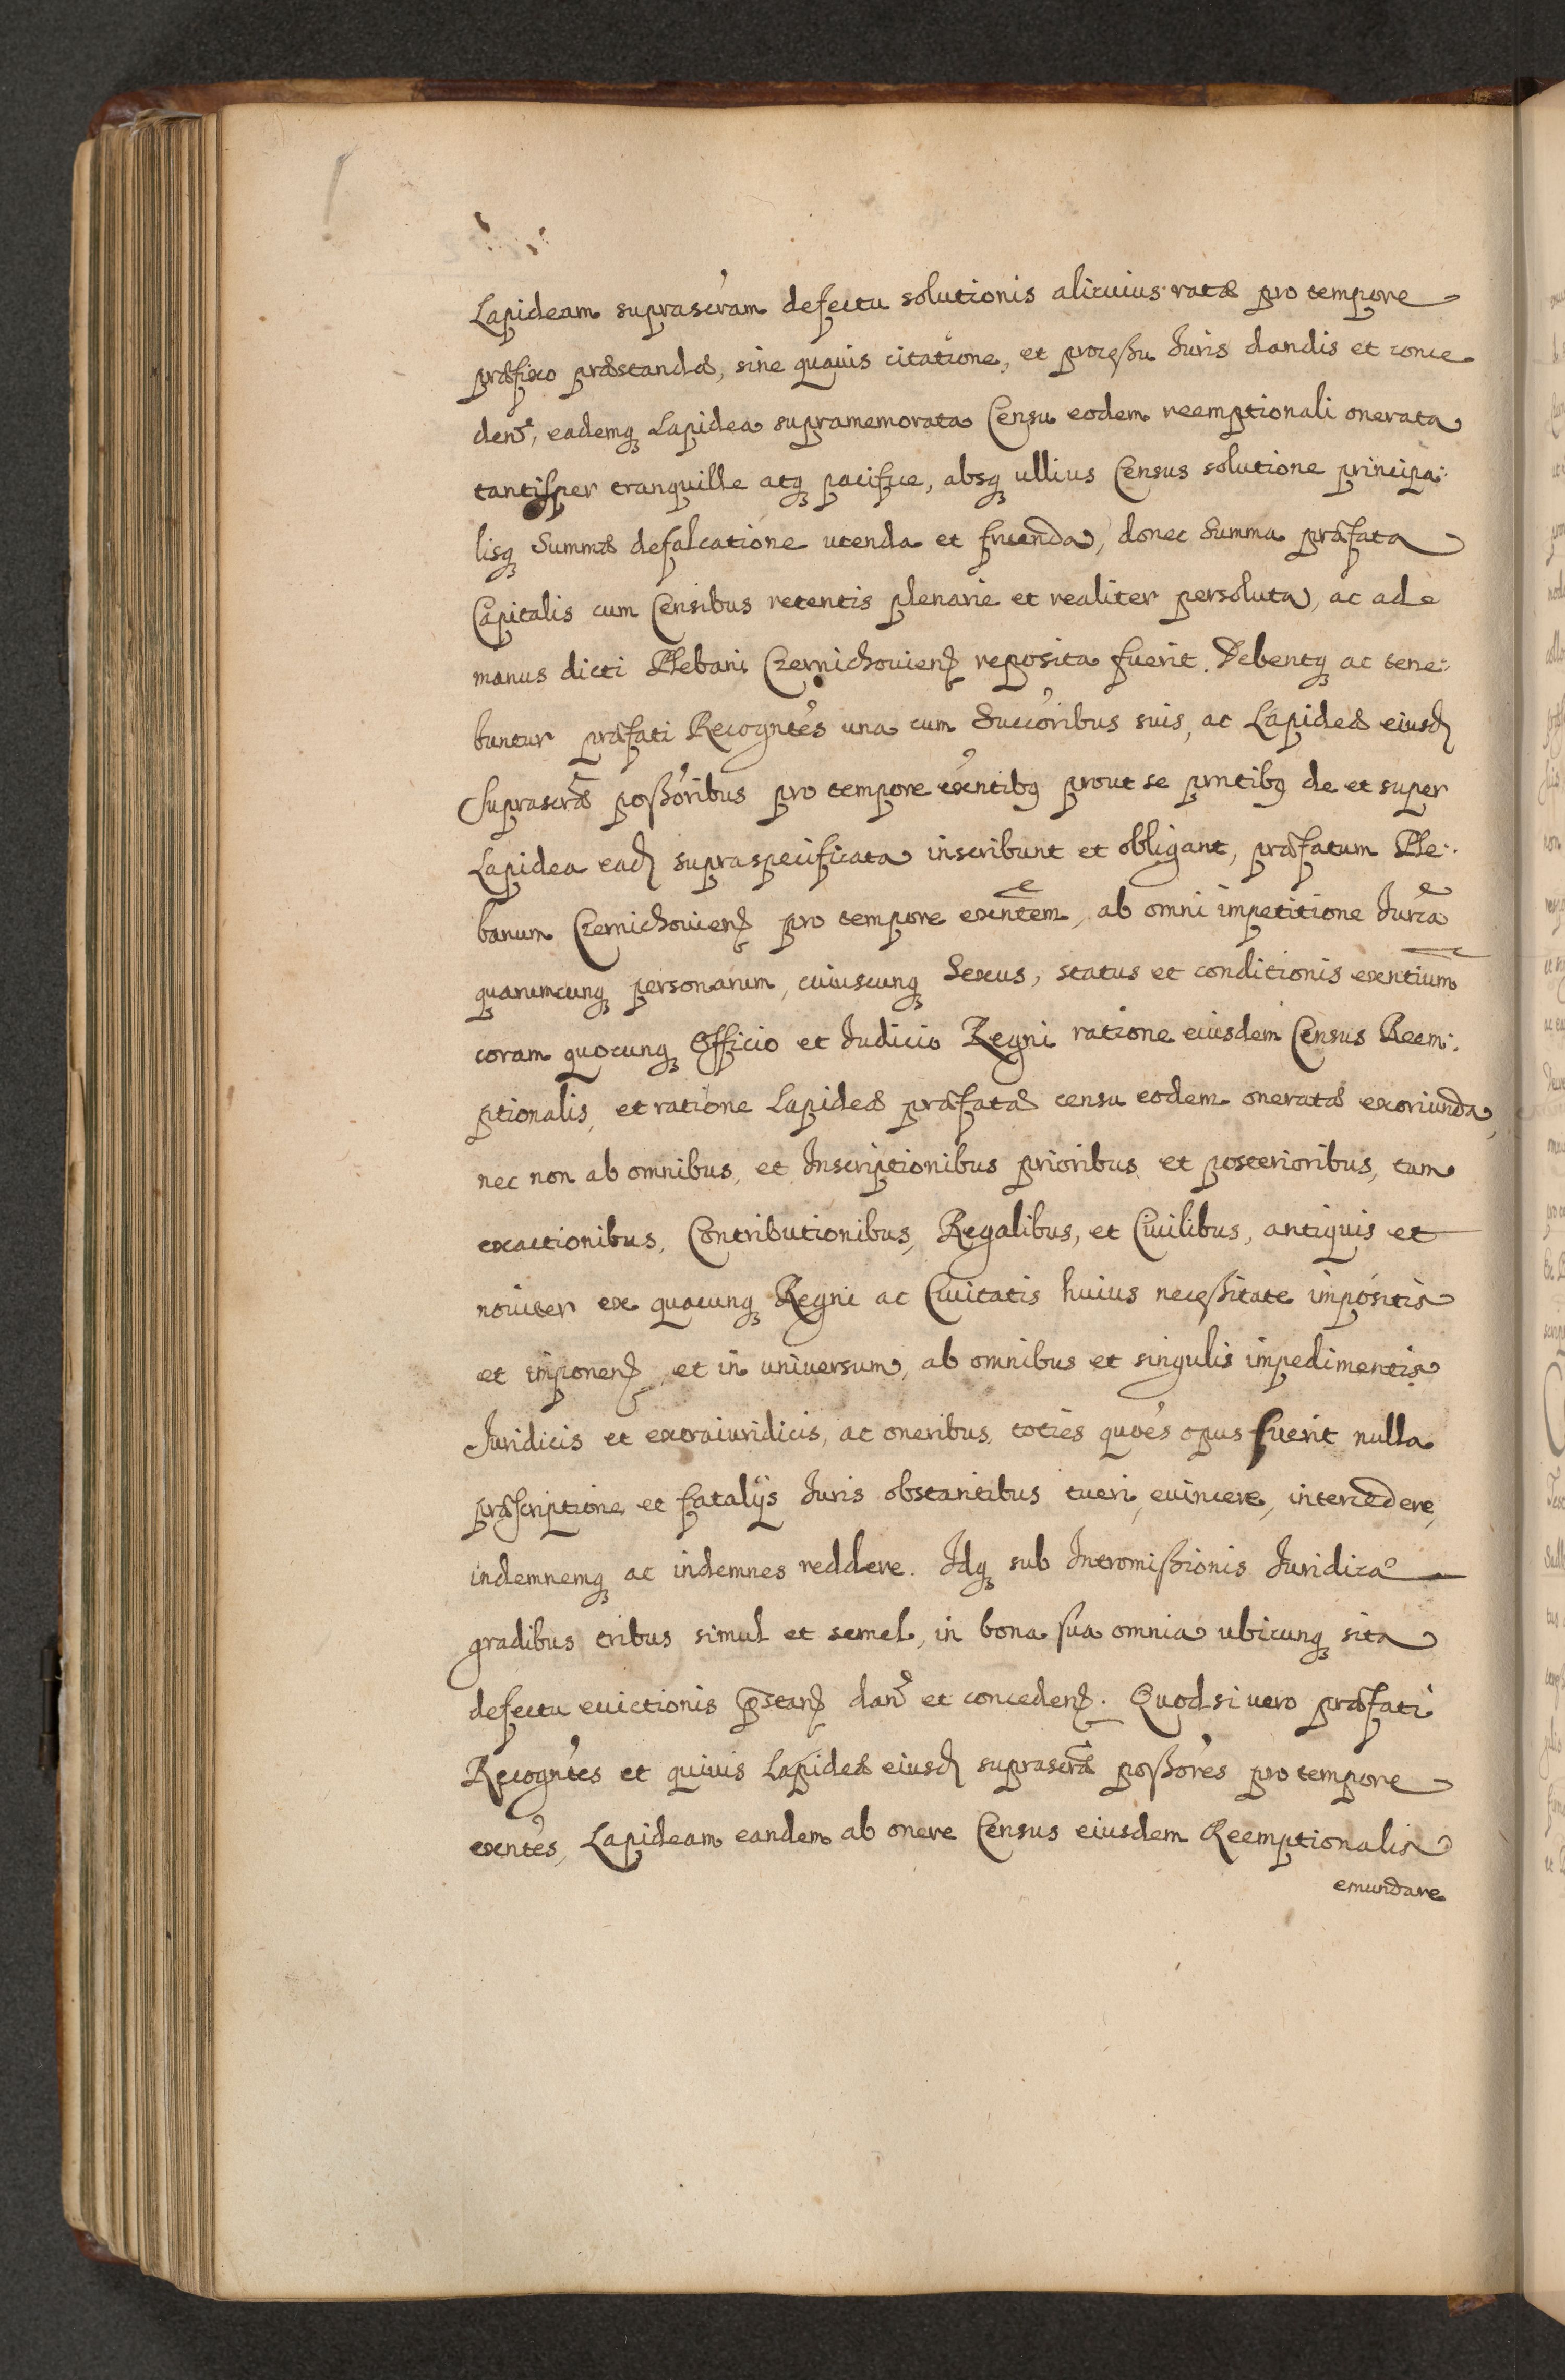 Lapideam suprascr̃am defectu solutionis alicuius ratæ pro tempore
præfixo præstandæ, sine quauis citatione, et processu Juris dandis et conce
den̄, eademq̃ Lapidea supramemorata Censu eodem reemptionali onerata
tantisper tranquille atq̃ pacifice, absq̃ ullius Census solutione principa:
lisq̃ Summæ defalcatione utenda et fruenda, donec Summa præfata
Capitalis cum Censibus retentis plenarie et realiter persoluta, ac ad
manus dicti Plebani Czernichouien̄ reposita fuerit. Debentq̃ ac tene:
buntur præfati Recogñtes una cum Succ̃oribus suis, ac Lapideæ eiusd̃
Suprascr̃æ poss̃oribus pro tempore ex̃ntibq̃ prout se pr̃ntibq̃ de et super
Lapidea ead̃ supraspecificata inscribunt et obligant, præfatum Ple:
banum Czernichouien̄ pro tempore ex̃ntem, ab omni impetitione Jur̃ca
quarumcunq̃ personarum, cuiuscunq̃ Sexus, status et conditionis ex̃ntium
coram quocunq̃ Officio et Judicio Regni ratione eiusdem Census Reem:
ptionalis, et ratione Lapideæ præfatæ censu eodem oneratæ exoriunda,
nec non ab omnibus, et Inscriptionibus prioribus et posterioribus, tum
exactionibus, Contributionibus, Regalibus, et Ciuilibus, antiquis et
nouiter ex quacunq̃ Regni ac Ciuitatis huius necessitate impositis
et imponen̄, et in universum, ab omnibus et singulis impedimentis
Juridicis et extraiuridicis, ac oneribus, toties quoẽs opus fuerit nulla
præscriptione et fatalijs Juris obstantibus tueri, euincere, intercedere,
indemnemq̃ ac indemnes reddere. Idq̃ sub Intromissionis Juridica
gradibus tribus simul et semel, in bona sua omnia ubicunq̃ sita
defectu evictionis p̃stan̄ dan̄ et conceden̄. Quod si uero præfati
Recogñtes et quiuis Lapideæ eiusd̃ suprascr̃æ poss̃ores pro tempore
ex̃ntes, Lapideam eandem ab onere Census eiusdem Reemptionalis
emundare